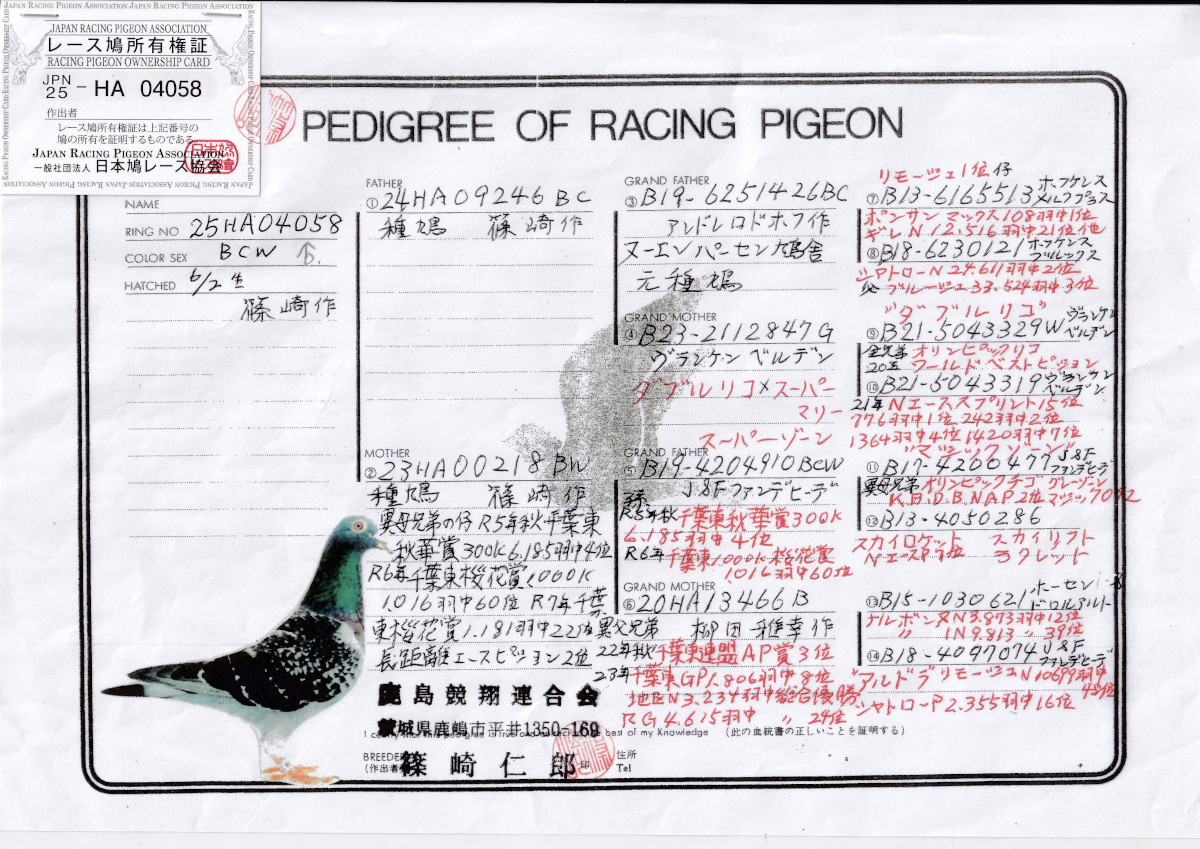 JAPAN RACING PIGEON ASSOCIATION JAPAN RACING PIGEON ASSOCIATION
JAPAN RACING PIGEON ASSOCIATION
レース鳩所有権証
RACING PIGEON OWNERSHIP CARD
JPN
25 - HA 04058
作出者
レース鳩所有権証は上記番号の
鳩の所有を証明するものである。
JAPAN RACING PIGEON ASSOCIATION
一般社団法人 日本鳩レース協会
PEDIGREE OF RACING PIGEON
NAME
RING NO 25HA04058
COLOR SEX BCW ♂
HATCHED 6/2生
篠崎作
FATHER
①24HA09246 BC
種鳩 篠崎作
MOTHER
②23HA00218 BW
種鳩 篠崎作
異母兄弟の仔 R5年秋千葉東
秋華賞300K6.185羽中4位
R6年千葉東桜花賞1,000K
1.016羽中60位 R7年千葉
東桜花賞1.181羽中22位
長距離エースピジョン2位
鹿島競翔連合会
茨城県鹿嶋市平井1350-169
best of my Knowledge (この血統書の正しいことを証明する)
BREEDER
(作出者) 篠崎仁郎 印
住所
Tel
GRAND FATHER
③B19-6251426BC
アンドレロドホフ作
ヌーエンパーセン鳩舎
元種鳩
GRAND MOTHER
④B23-2112847G
ヴランケン ベルデン
ダブルリコ×スーパー
マリー
スーパーゾーン
GRAND FATHER
⑤B19-4204910BCW
J&Fファンデヒーデ
R5年秋千葉東秋華賞300K
6.185羽中4位
R6年千葉東1.000K桜花賞
1.016羽中60位
GRAND MOTHER
⑥20HA13466B
異父兄弟 柳田雅幸作
22年秋千葉東連盟AP賞3位
23年千葉東GP1.806羽中8位
地区N3.234羽中総合優勝
RG4.615羽中 〃 29位
リモージュ1位仔
⑦B13-6165513 ホフケンス
メルクプラス
ポンサン マックス108羽中1位
ギレN12.516羽中21位他
⑧B18-6230121 ホフケンス
ブルックス
シャトローN24.611羽中2位
ブルージュ33.524羽中3位
"ダブルリコ"
⑨B21-5043329W ヴランケン
ベルデン
全兄弟 オリンピックリコ
20五 ワールドベストピジョン
⑩B21-5043319 ヴランケン
ベルデン
21年Nエーススプリント15位
776羽中1位 242羽中2位
1364羽中4位 1420羽中7位
"マジックゾーン"
⑪B17-4200477 J&F
ファンデヒーデ
異母兄弟 オリンピックチゴ グレーゾーン
K.B.D.B.NAP2位 マジック7072
⑫B13-4050286
スカイロケット スカイリフト
ラクレット
⑬B15-1030621 ホーセン
ナルボンヌN3.873羽中12位
〃 IN9.813 〃 39位
⑭B18-4097074 J&F
ファンデヒーデ
アルドラ リモージュN10699羽中
48位
シャトローP2.355羽中16位